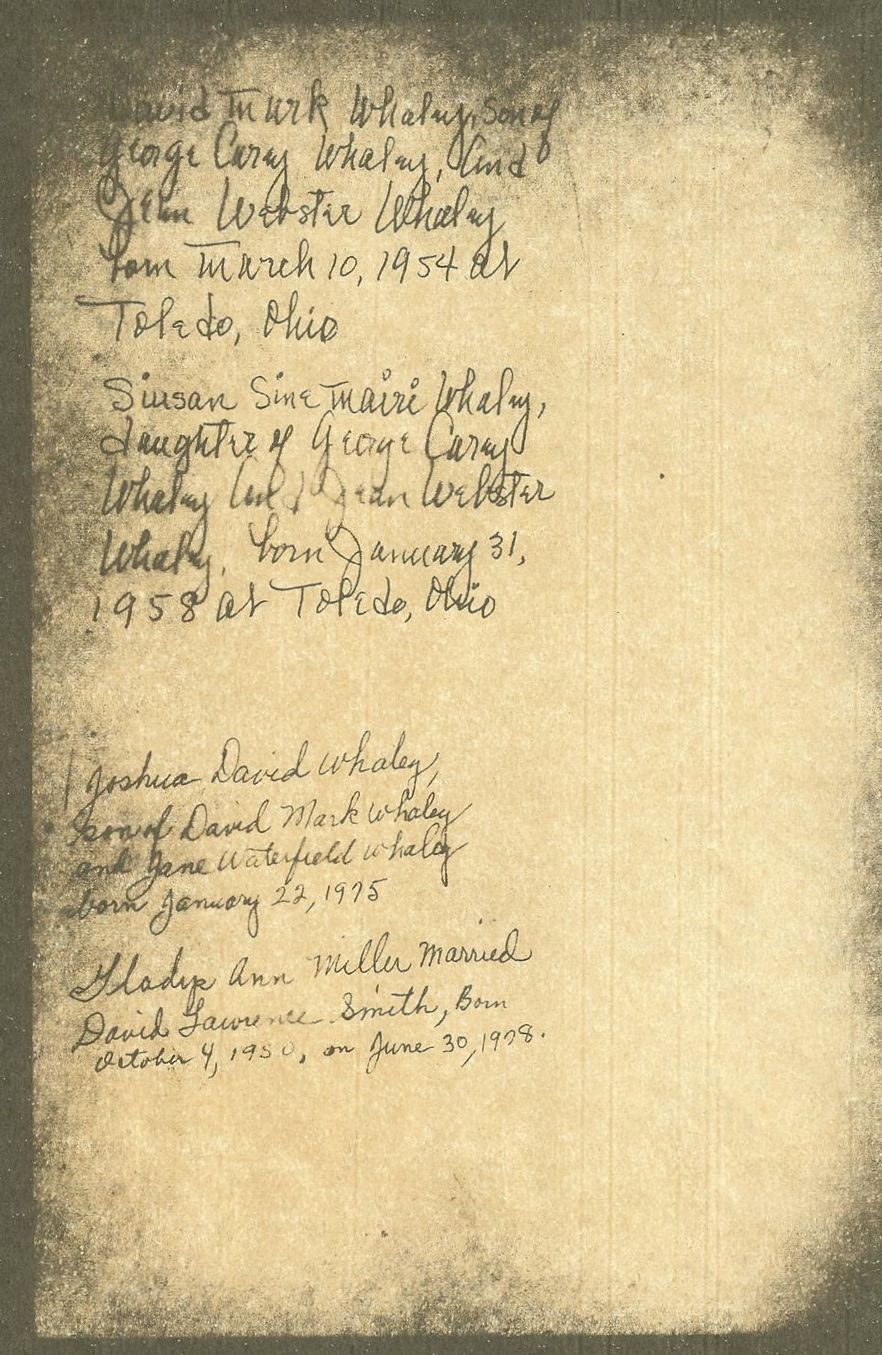 David Mark Whaley, son of
George Carey Whaley, and
Jean Webster Whaley
born March 10, 1954 at
Toledo, Ohio
Siusan Sine Mairi Whaley,
daughter of George Carey
Whaley and Jean Webster
Whaley, born January 31,
1958 at Toledo, Ohio
Joshua David Whaley,
son of David Mark Whaley
and Jane Waterfield Whaley
born January 22, 1975
Gladys Ann Miller Married
David Lawrence Smith, Born
October 4, 1950, on June 30, 1978.